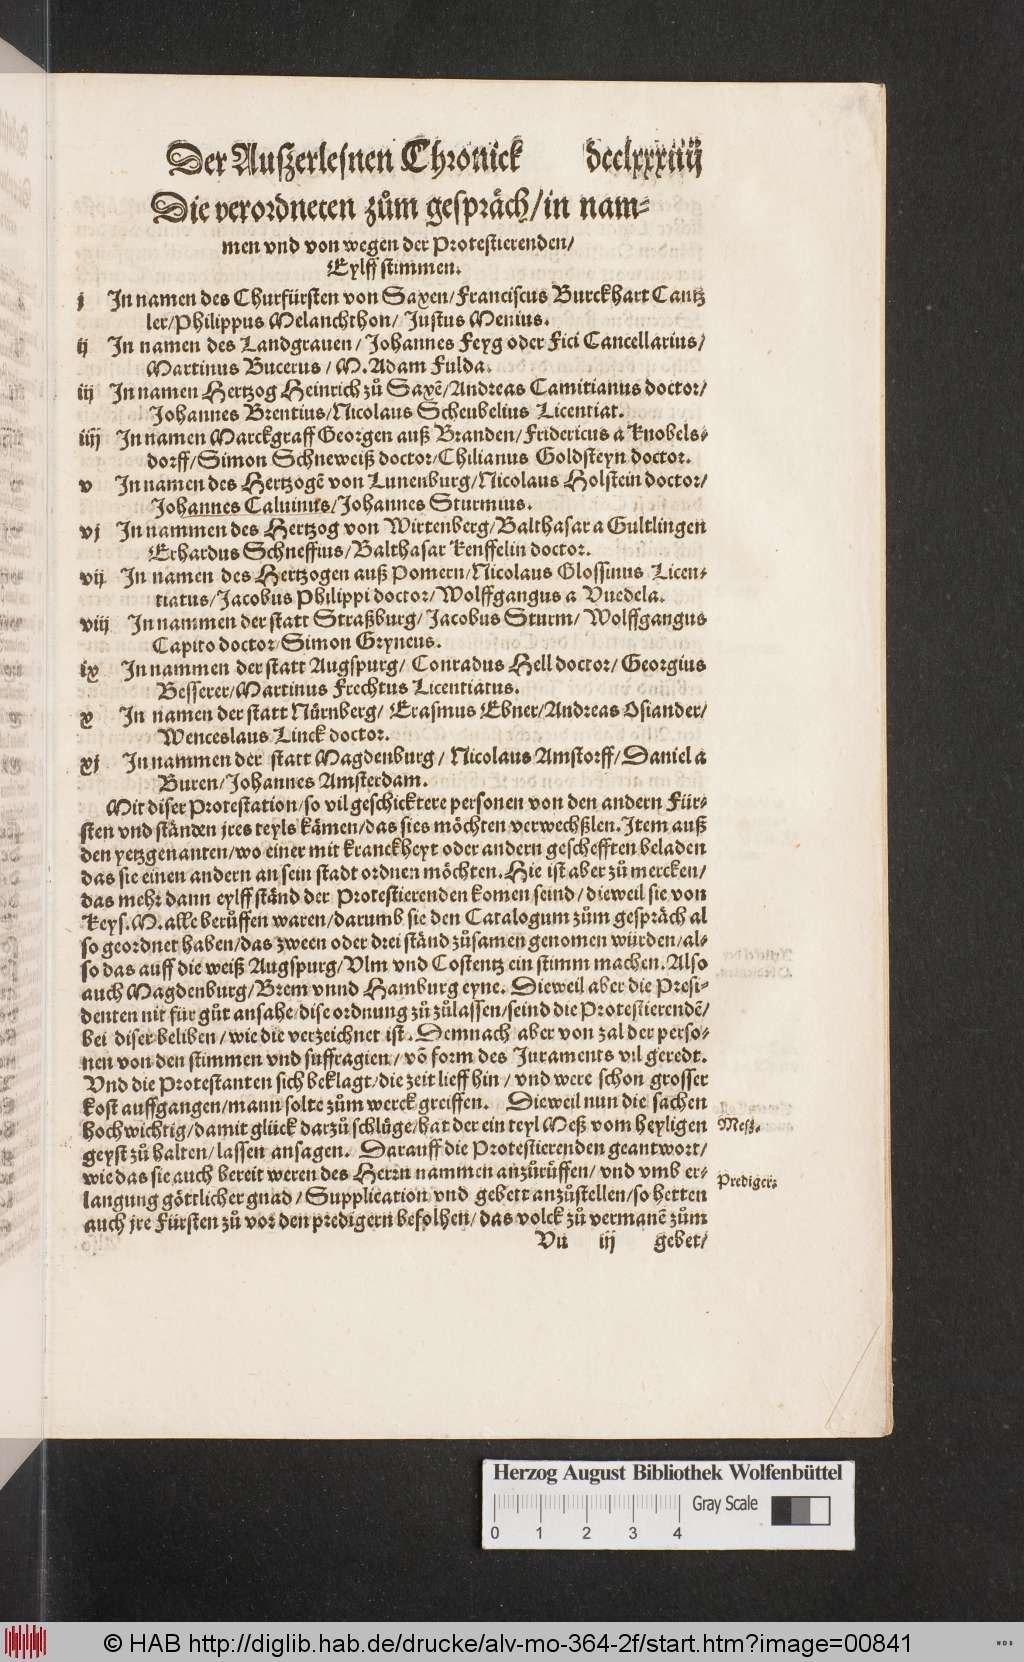 Der Außerlesnen Chronick dcclxxxiiij
Die verordneten zům gespräch/in nam-
men vnd von wegen der Protestierenden/
Eylff stimmen.
j In namen des Churfürsten von Saxen/Franciscus Burckhart Cantz
ler/Philippus Melanchthon/ Justus Menius.
ij In namen des Landgrauen/ Johannes Feyg oder Fici Cancellarius/
Martinus Bucerus / M. Adam Fulda.
iij In namen Hertzog Heinrich zů Saxē/Andreas Camitianus doctor/
Johannes Brentius/Nicolaus Scheubelius Licentiat.
iiij In namen Marckgraff Georgen auß Branden/Fridericus a Knobels-
dorff/Simon Schneweiß doctor/Chilianus Goldsteyn doctor.
v In namen des Hertzogē von Lunenburg/Nicolaus Holstein doctor/
Johannes Caluinus/Johannes Sturmius.
vj In nammen des Hertzog von Wirtenberg/Balthasar a Gultlingen
Erhardus Schneffius/Balthasar Kenffelin doctor.
vij In namen des Hertzogen auß Pomern/Nicolaus Glossinus Licen-
tiatus/Jacobus Philippi doctor/Wolffgangus a Vuedela.
viij In nammen der statt Straßburg/ Jacobus Sturm/ Wolffgangus
Capito doctor/Simon Gryneus.
ix In nammen der statt Augspurg/ Conradus Hell doctor/ Georgius
Besserer/Martinus Frechtus Licentiatus.
x In namen der statt Nürnberg/ Erasmus Ebner/Andreas Osiander/
Wenceslaus Linck doctor.
xj In nammen der statt Magdenburg / Nicolaus Amstorff/Daniel a
Buren/Johannes Amsterdam.
Mit diser Protestation/so vil geschicktere personen von den andern Für-
sten vnd ständen jres teyls kämen/das sies möchten verwechßlen. Item auß
den yetzgenanten/wo einer mit kranckheyt oder andern geschefften beladen
das sie einen andern an sein stadt ordnen möchten. Hie ist aber zů mercken/
das mehr dann eylff ständ der Protestierenden komen seind/dieweil sie von
Keys. M. alle berůffen waren/darumb sie den Catalogum zům gespräch al
so geordnet haben/das zween oder drei ständ zůsamen genomen würden/al-
so das auff die weiß Augspurg/Vlm vnd Costentz ein stimm machen. Also
auch Magdenburg/Brem vnnd Hamburg eyne. Dieweil aber die Presi-
denten nit für gůt ansahe/dise ordnung zů zůlassen/seind die Protestierendē/
bei diser beliben/ wie die verzeichnet ist. Demnach aber von zal der perso-
nen von den stimmen vnd suffragien/ vō form des Juraments vil geredt.
Vnd die Protestanten sich beklagt/die zeit lieff hin / vnd were schon grosser
kost auffgangen/mann solte zům werck greiffen. Dieweil nun die sachen
hochwichtig/damit glück darzů schlüge/hat der ein teyl Meß vom heyligen Meß.
geyst zů halten/ lassen ansagen. Darauff die Protestierenden geantwort/
wie das sie auch bereit weren des Herrn nammen anzůrůffen/ vnd vmb er- Prediger.
langung göttlicher gnad / Supplication vnd gebett anzůstellen/so hetten
auch jre Fürsten zů vor den predigern befolhen/das volck zů vermanē zům
Vu iij gebet/
Herzog August Bibliothek Wolfenbüttel
Gray Scale
0 1 2 3 4
© HAB http://diglib.hab.de/drucke/alv-mo-364-2f/start.htm?image=00841